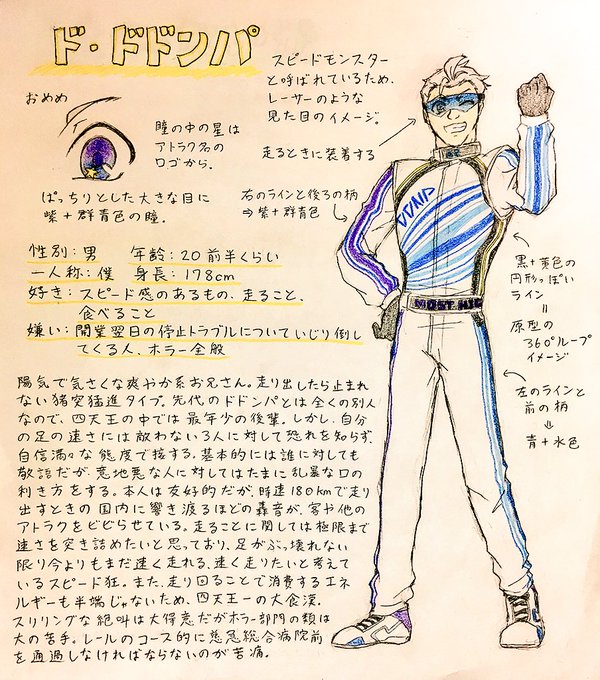 ド・ドドンパ
おめめ
瞳の中の星は
アトラク名の
ロゴから。
ぱっちりとした大きな目に
紫+群青色の瞳。
スピードモンスター
と呼ばれているため、
レーサーのような
見た目のイメージ。
走るときに装着する
右のラインと後ろの柄
⇒紫+群青色
性別:男 年齢:20前半くらい
一人称:僕 身長:178cm
好き:スピード感のあるもの、走ること、
食べること
嫌い:開業翌日の停止トラブルについていじり倒し
てくる人、ホラー全般
DDNP
MOST HIG
黒+黄色の
円形っぽい
ライン
=
原型の
360°ループ
イメージ
左のラインと
前の柄
⇓
青+水色
陽気で気さくな爽やか系お兄さん。走り出したら止まれ
ない猪突猛進タイプ。先代のドドンパとは全くの別人
なので、四天王の中では最年少の後輩。しかし、自分
の足の速さには敵わない3人に対して恐れを知らず、
自信満々な態度で接する。基本的には誰に対しても
敬語だが、意地悪な人に対してはたまに乱暴な口の
利き方をする。本人は友好的だが、時速180kmで走り
出すときの国内に響き渡るほどの轟音が、客や他の
アトラクをビビらせている。走ることに関しては極限まで
速さを突き詰めたいと思っており、足がぶっ壊れない
限り今よりもまだ速く走れる、速く走りたいと考えて
いるスピード狂。また、走り回ることで消費するエネ
ルギーも半端じゃないため、四天王一の大食漢。
スリリングな絶叫は大得意だがホラー部門の類は
大の苦手。レールのコース的に慈急総合病院前
を通過しなければならないのが苦痛。